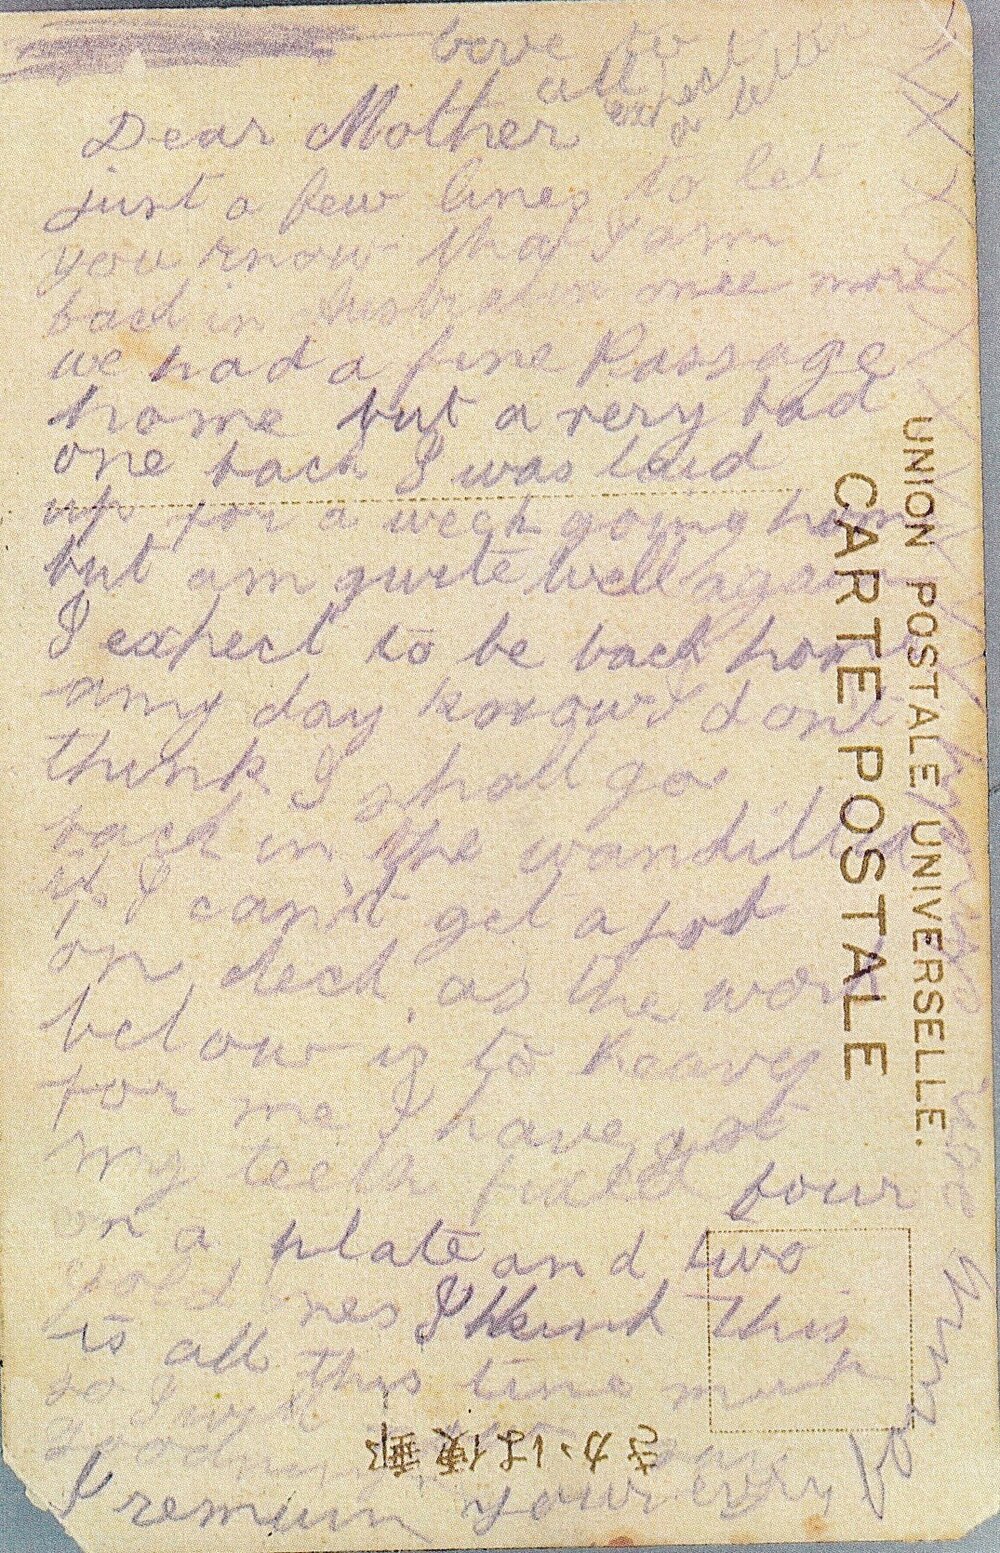 love to
all
Dear Mother
just a few lines to let
you know that I am
back in more
we had a fine Passage
home but a very bad
one back I was laid
up for a week going home
but am quite well again
I expect to be back home
any day know I dont
think I shall go
back in the wandilla
if I can't get a job
on deck as the work
below is to heavy
for me I have got
my teeth four
on a plate and two
gold ones I think this
is all this time
so I will
I remain your ever
UNION POSTALE UNIVERSELLE.
CARTE POSTALE
郵便はかき